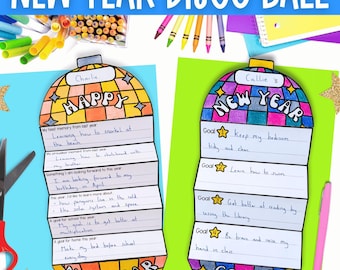 NEW YEAR DISCO BALL
Charlie
HAPPY
My best memory from last year
Learning how to snorkel at
the beach.
Learning how to skateboard with
my brother.
Something I am looking forward to this year
I am looking forward to my
birthday in April.
I'd like to learn more about
how penguins live in the cold
the solar system and space.
A goal for school this year
My goal is to get better at
multiplication.
A goal for home this year
Make my bed before school
every day.
Callie
NEW YEAR
Goal Keep my bedroom
tidy and clean.
Goal Learn how to swim
Goal Get better at reading by
using the library.
Goal Be brave and raise my
hand in class.
YEAR